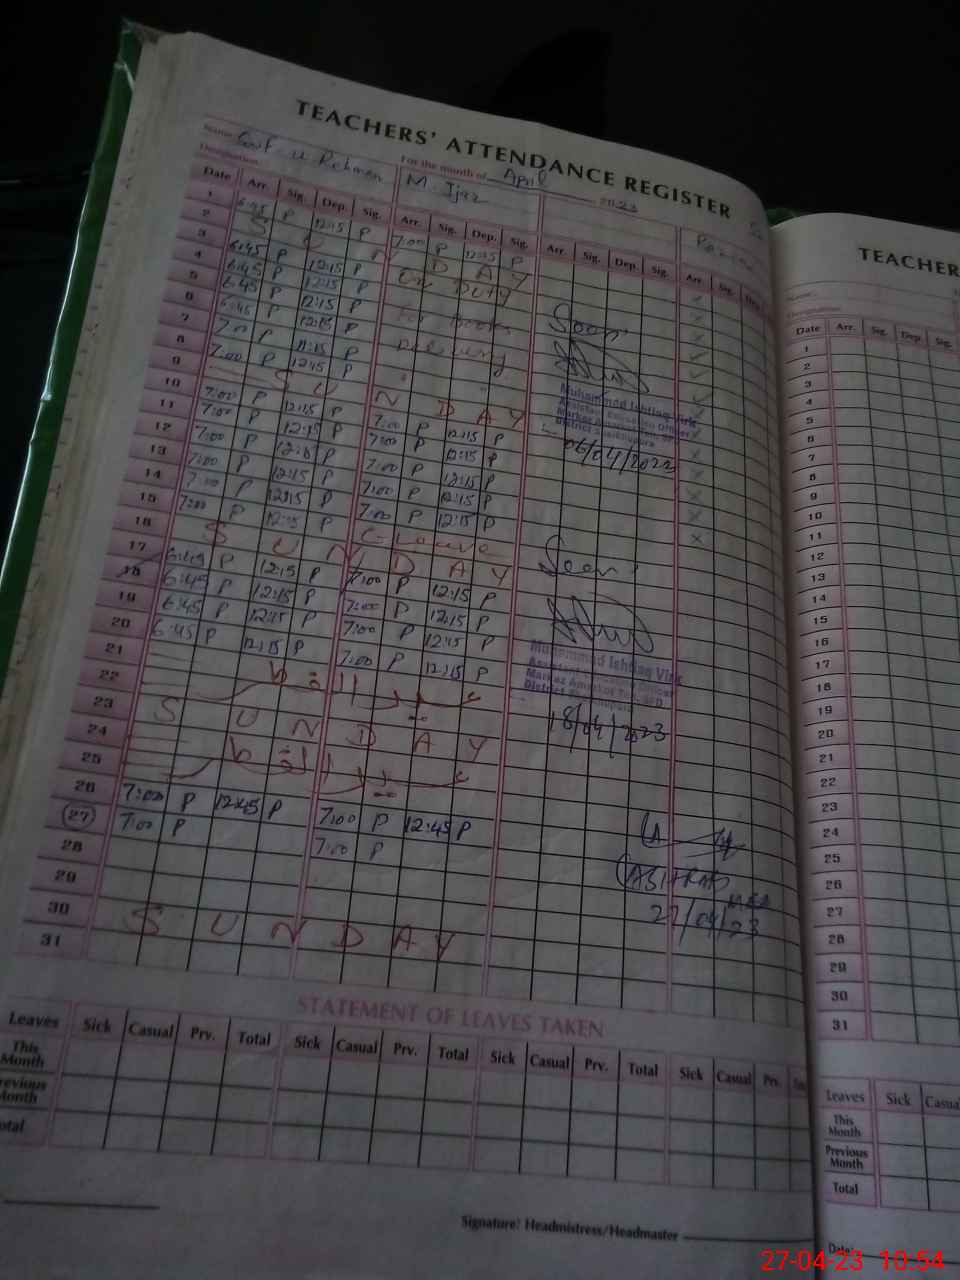 TEACHERS' ATTENDANCE REGISTER
Name: Saif u Rehman
For the month of April 2023
Designation: M. Ijaz
Date Arr. Sig. Dep. Sig. Arr. Sig. Dep. Sig. Arr. Sig. Dep. Sig. Arr. Sig.
1 6:45 P 12:15 P 7:00 P 12:15 P
2 S U N D A Y
3 6:45 P 12:15 P On DUTY
4 6:45 P 12:15 P For Books
5 6:45 P 12:15 P Delivery
6 6:45 P 12:15 P
7 7:00 P 11:15 P
8 7:00 P 12:45 P
9 S U N D A Y
10 7:00 P 12:15 P 7:00 P 12:15 P
11 7:00 P 12:15 P 7:00 P 12:15 P
12 7:00 P 12:15 P 7:00 P 12:15 P
13 7:00 P 12:15 P 7:00 P 12:15 P
14 7:00 P 12:15 P 7:00 P 12:15 P
15 7:00 P 12:15 P C-leave
16 S U N D A Y
17 6:45 P 12:15 P 7:00 P 12:15 P
18 6:45 P 12:15 P 7:00 P 12:15 P
19 6:45 P 12:15 P 7:00 P 12:15 P
20 6:45 P 12:15 P 7:00 P 12:15 P
21
22 عید الفطر
23 S U N D A Y
24 عید الفطر
25
26 7:00 P 12:45 P 7:00 P 12:45 P
27 7:00 P 7:00 P
28
29
30 S U N D A Y
31
Seen
Muhammad Ishtiaq Virk
Assistant Education Officer
06/04/2023
Seen
Muhammad Ishtiaq Virk
Assistant Education Officer
18/04/2023
MEA
27/04/23
STATEMENT OF LEAVES TAKEN
Leaves Sick Casual Prv. Total Sick Casual Prv. Total Sick Casual Prv. Total Sick Casual Prv.
This Month
Previous Month
Total
Signature: Headmistress/Headmaster
TEACHER
Name:
Designation:
Date Arr. Sig. Dep. Sig.
1
2
3
4
5
6
7
8
9
10
11
12
13
14
15
16
17
18
19
20
21
22
23
24
25
26
27
28
29
30
31
Leaves Sick Casual
This Month
Previous Month
Total
Date:
27-04-23 10:54